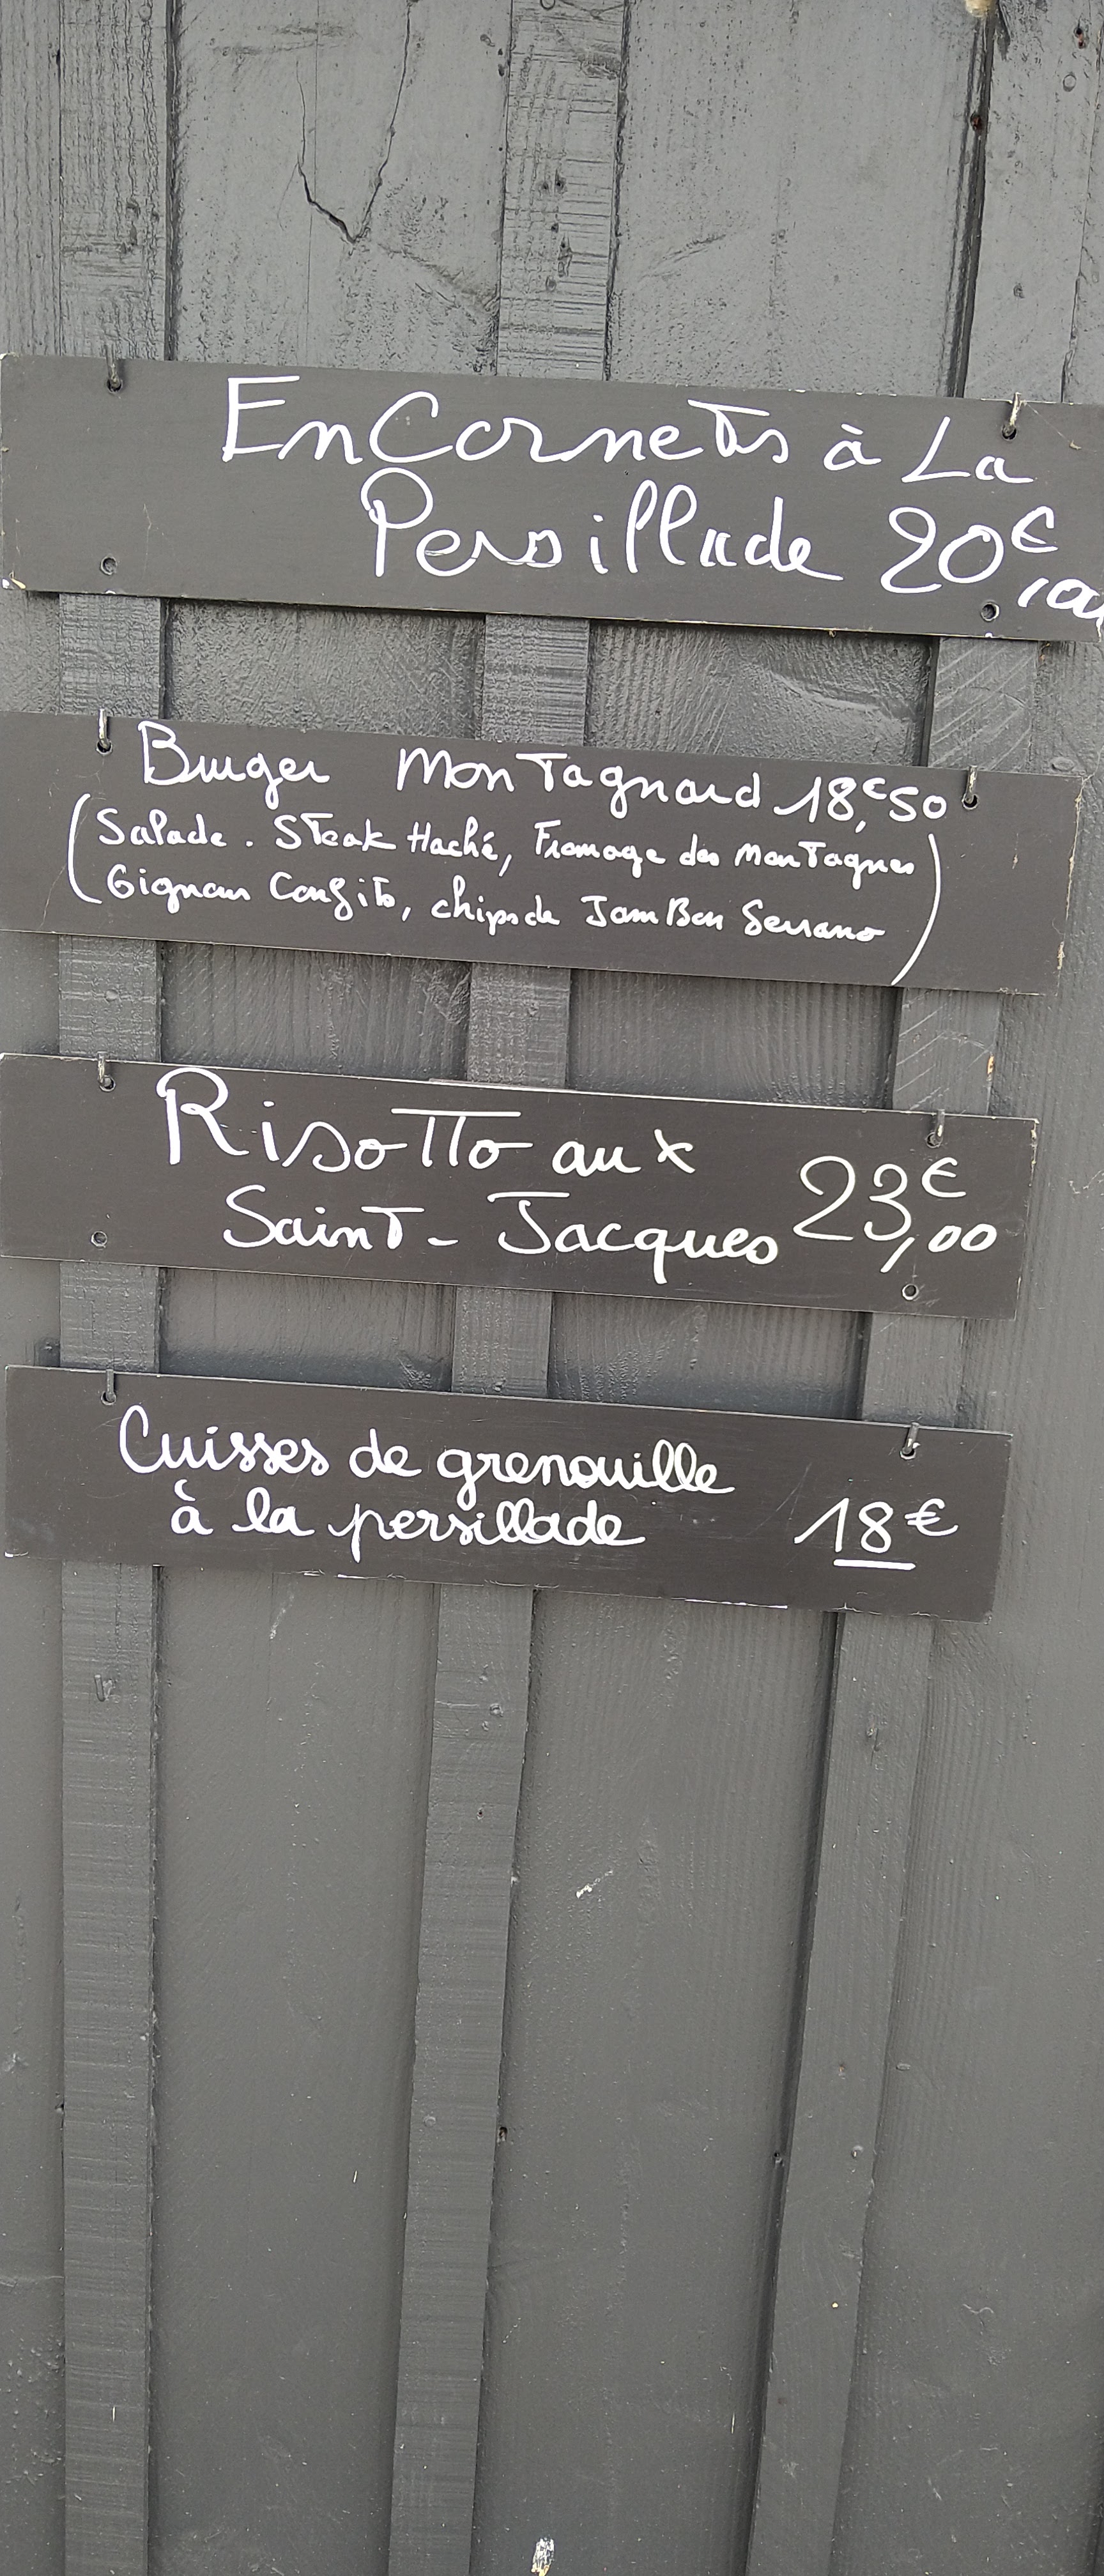 EnCornets à La
Persillade 20€,00
Burger MonTagnard 18,€50
(Salade. STeak Haché, Fromage des MonTagnes
Oignon Confits, chips de JamBon Serrano)
RisoTTo aux
SainT-Jacques 23€,00
Cuisses de grenouille
à la persillade 18€